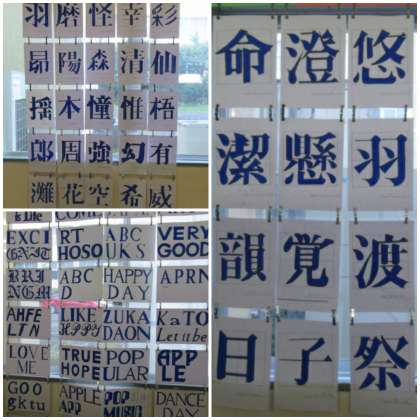 羽磨怪幸彩
昴陽森清仙
揺本憧惟梧
郎周強幻有
灘花空希威
命澄悠
潔懸羽
韻覚渡
日子祭
is Life COME
EXCI RT ABC VERY
HOSO UKS GOOD
ABC HAPPY APRN
D DAY
AHFE LIKE ZUKA KaTO
LTN DAON Let it be
LOVE TRUE POP APP
ME HOPE ULAR LE
GOO APPLE POP DANCE
gktu APP MUSIC DAY